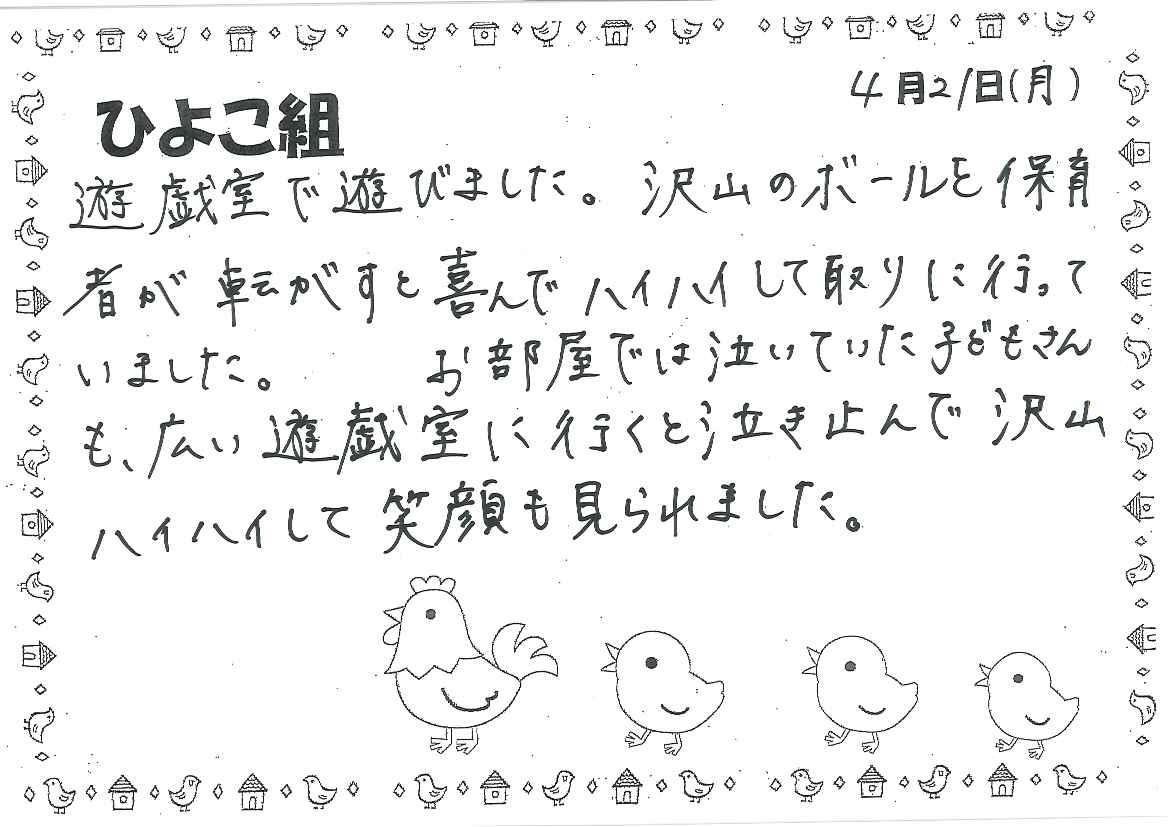 4月21日(月)
ひよこ組
遊戯室で遊びました。沢山のボールを保育
者が転がすと喜んでハイハイして取りに行って
いました。 お部屋では泣いていた子どもさん
も、広い遊戯室に行くと泣き止んで沢山
ハイハイして笑顔も見られました。